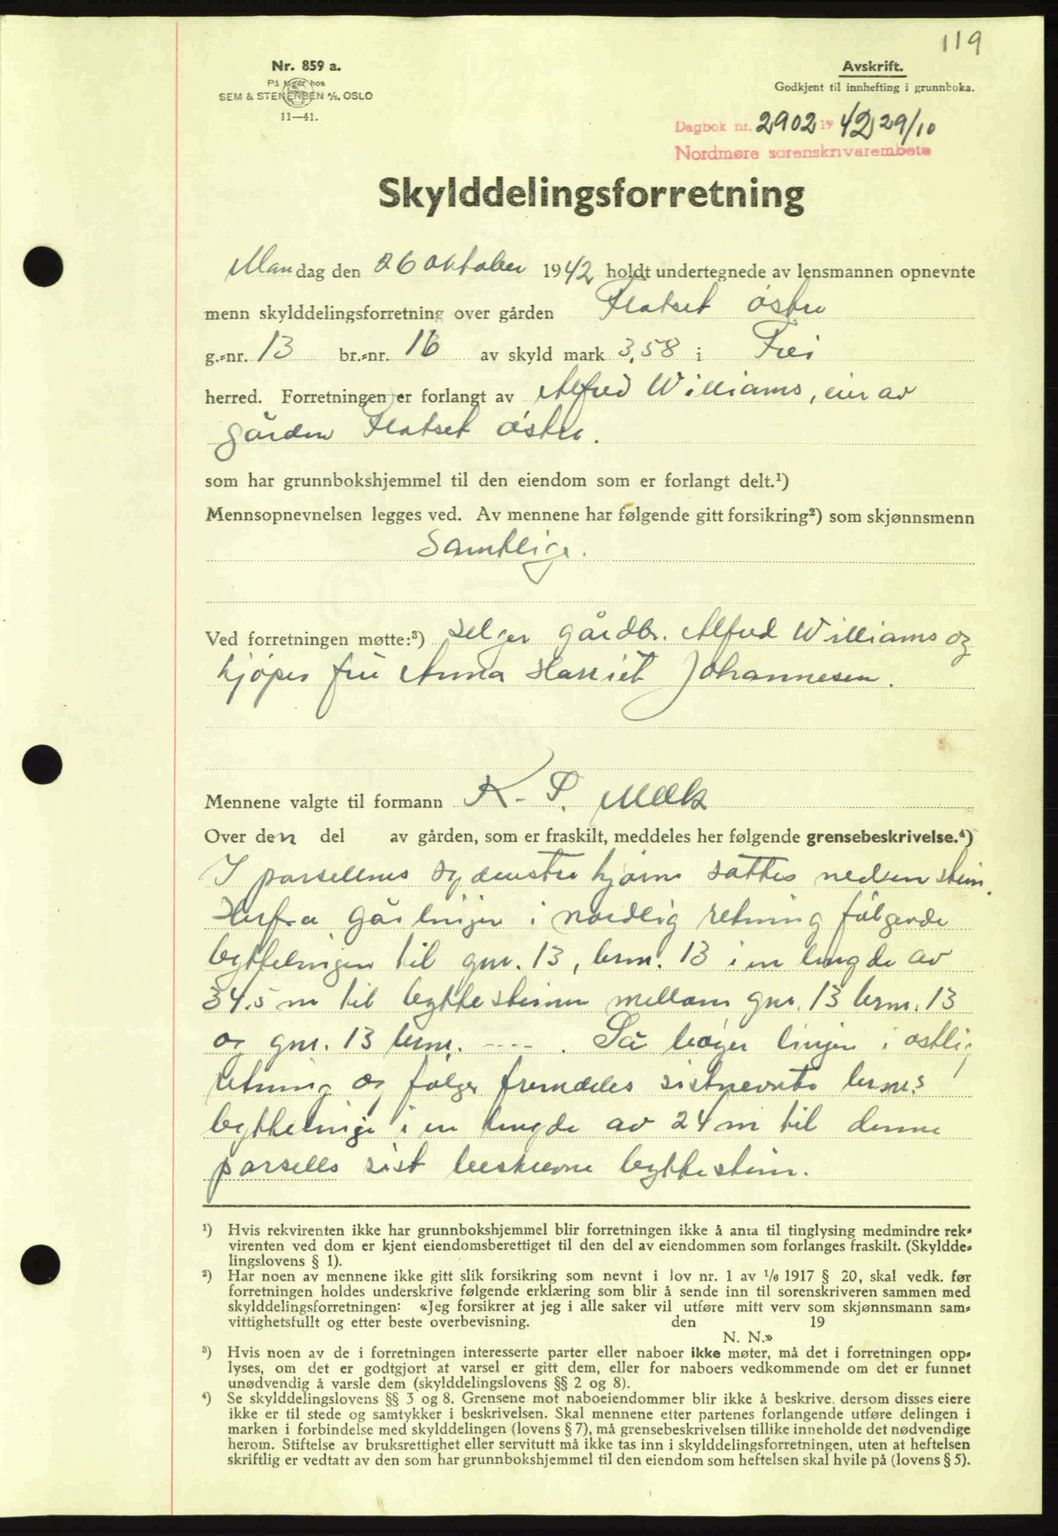 119
Nr. 859 a.
På lager hos
SEM & STENERSEN A/S, OSLO
11—41.
Avskrift.
Godkjent til innhefting i grunnboka.
Dagbok nr. 2902 19 42 29/10
Nordmøre sorenskrivarembete
Skylddelingsforretning
Mandag den 26 oktober 1942 holdt undertegnede av lensmannen opnevnte
menn skylddelingsforretning over gården Flatset østre
g.-nr. 13 br.-nr. 16 av skyld mark 3,58 i Frei
herred. Forretningen er forlangt av Alfred Williams, eier av
gården Flatset østre.
som har grunnbokshjemmel til den eiendom som er forlangt delt.¹)
Mennsopnevnelsen legges ved. Av mennene har følgende gitt forsikring²) som skjønnsmenn
Samtlige.
Ved forretningen møtte:³) selger gårdbr. Alfred Williams og
kjøper fru Anna Harriet Johannesen.
Mennene valgte til formann K. P. Melk
Over den del av gården, som er fraskilt, meddeles her følgende grensebeskrivelse.⁴)
I parsellens sydøstre hjørne sattes nedsen stein.
Herfra går linjen i nordlig retning følgende
byttelinjen til gnr. 13, brnr. 13 i en lengde av
34.5 m til byttesteinen mellom gnr. 13 brnr. 13
og gnr. 13 brnr. ---- . Så bøyer linjen i østlig
retning og følger fremdeles sistnevnte brnr.s
byttelinje i en lengde av 24 m til denne
parsells sist beskrevne byttestein.
¹) Hvis rekvirenten ikke har grunnbokshjemmel blir forretningen ikke å anta til tinglysing medmindre rek-
virenten ved dom er kjent eiendomsberettiget til den del av eiendommen som forlanges fraskilt. (Skyldde-
lingslovens § 1).
²) Har noen av mennene ikke gitt slik forsikring som nevnt i lov nr. 1 av 1/6 1917 § 20, skal vedk. før
forretningen holdes underskrive følgende erklæring som blir å sende inn til sorenskriveren sammen med
skylddelingsforretningen: «Jeg forsikrer at jeg i alle saker vil utføre mitt verv som skjønnsmann sam-
vittighetsfullt og etter beste overbevisning. den 19
N. N.»
³) Hvis noen av de i forretningen interesserte parter eller naboer ikke møter, må det i forretningen opp-
lyses, om det er godtgjort at varsel er gitt dem, eller for naboers vedkommende om det er funnet
unødvendig å varsle dem (skylddelingslovens §§ 2 og 8).
⁴) Se skylddelingslovens §§ 3 og 8. Grensene mot naboeiendommer blir ikke å beskrive, dersom disses eiere
ikke er til stede og samtykker i beskrivelsen. Skal mennene etter partenes forlangende utføre delingen i
marken i forbindelse med skylddelingen (lovens § 7), må grensebeskrivelsen tillike inneholde det nødvendige
herom. Stiftelse av bruksrettighet eller servitutt må ikke tas inn i skylddelingsforretningen, uten at heftelsen
skriftlig er vedtatt av den som har grunnbokshjemmel til den eiendom som heftelsen skal hvile på (lovens § 5).